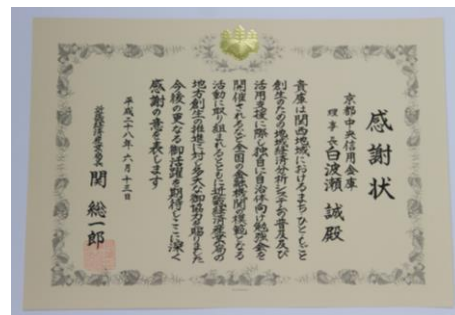 感謝状
京都中央信用金庫
理事長 白波瀬 誠 殿
貴庫は関西地域におけるまち・ひと・しごと
創生のための地域経済分析システムの普及及び
活用支援に際し独自に自治体向け勉強会を
開催されるなど全国の金融機関の模範となる
活動に取り組まれるとともに近畿経済産業局の
地方創生の推進に対し多大な御協力を賜りました
今後の更なる御活躍を期待しここに深く
感謝の意を表します
平成二十八年六月十三日
近畿経済産業局長 関 総一郎